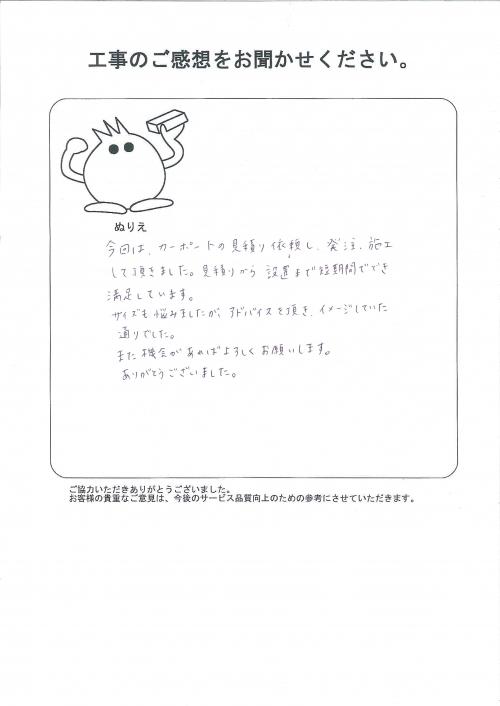 工事のご感想をお聞かせください。
ぬりえ
今回は、カーポートの見積り依頼し、発注、施工
して頂きました。見積りから設置まで短期間ででき
満足しています。
サイズも悩みましたが、アドバイスを頂き、イメージしていた
通りでした。
また機会があればよろしくお願いします。
ありがとうございました。
ご協力いただきありがとうございました。
お客様の貴重なご意見は、今後のサービス品質向上のための参考にさせていただきます。